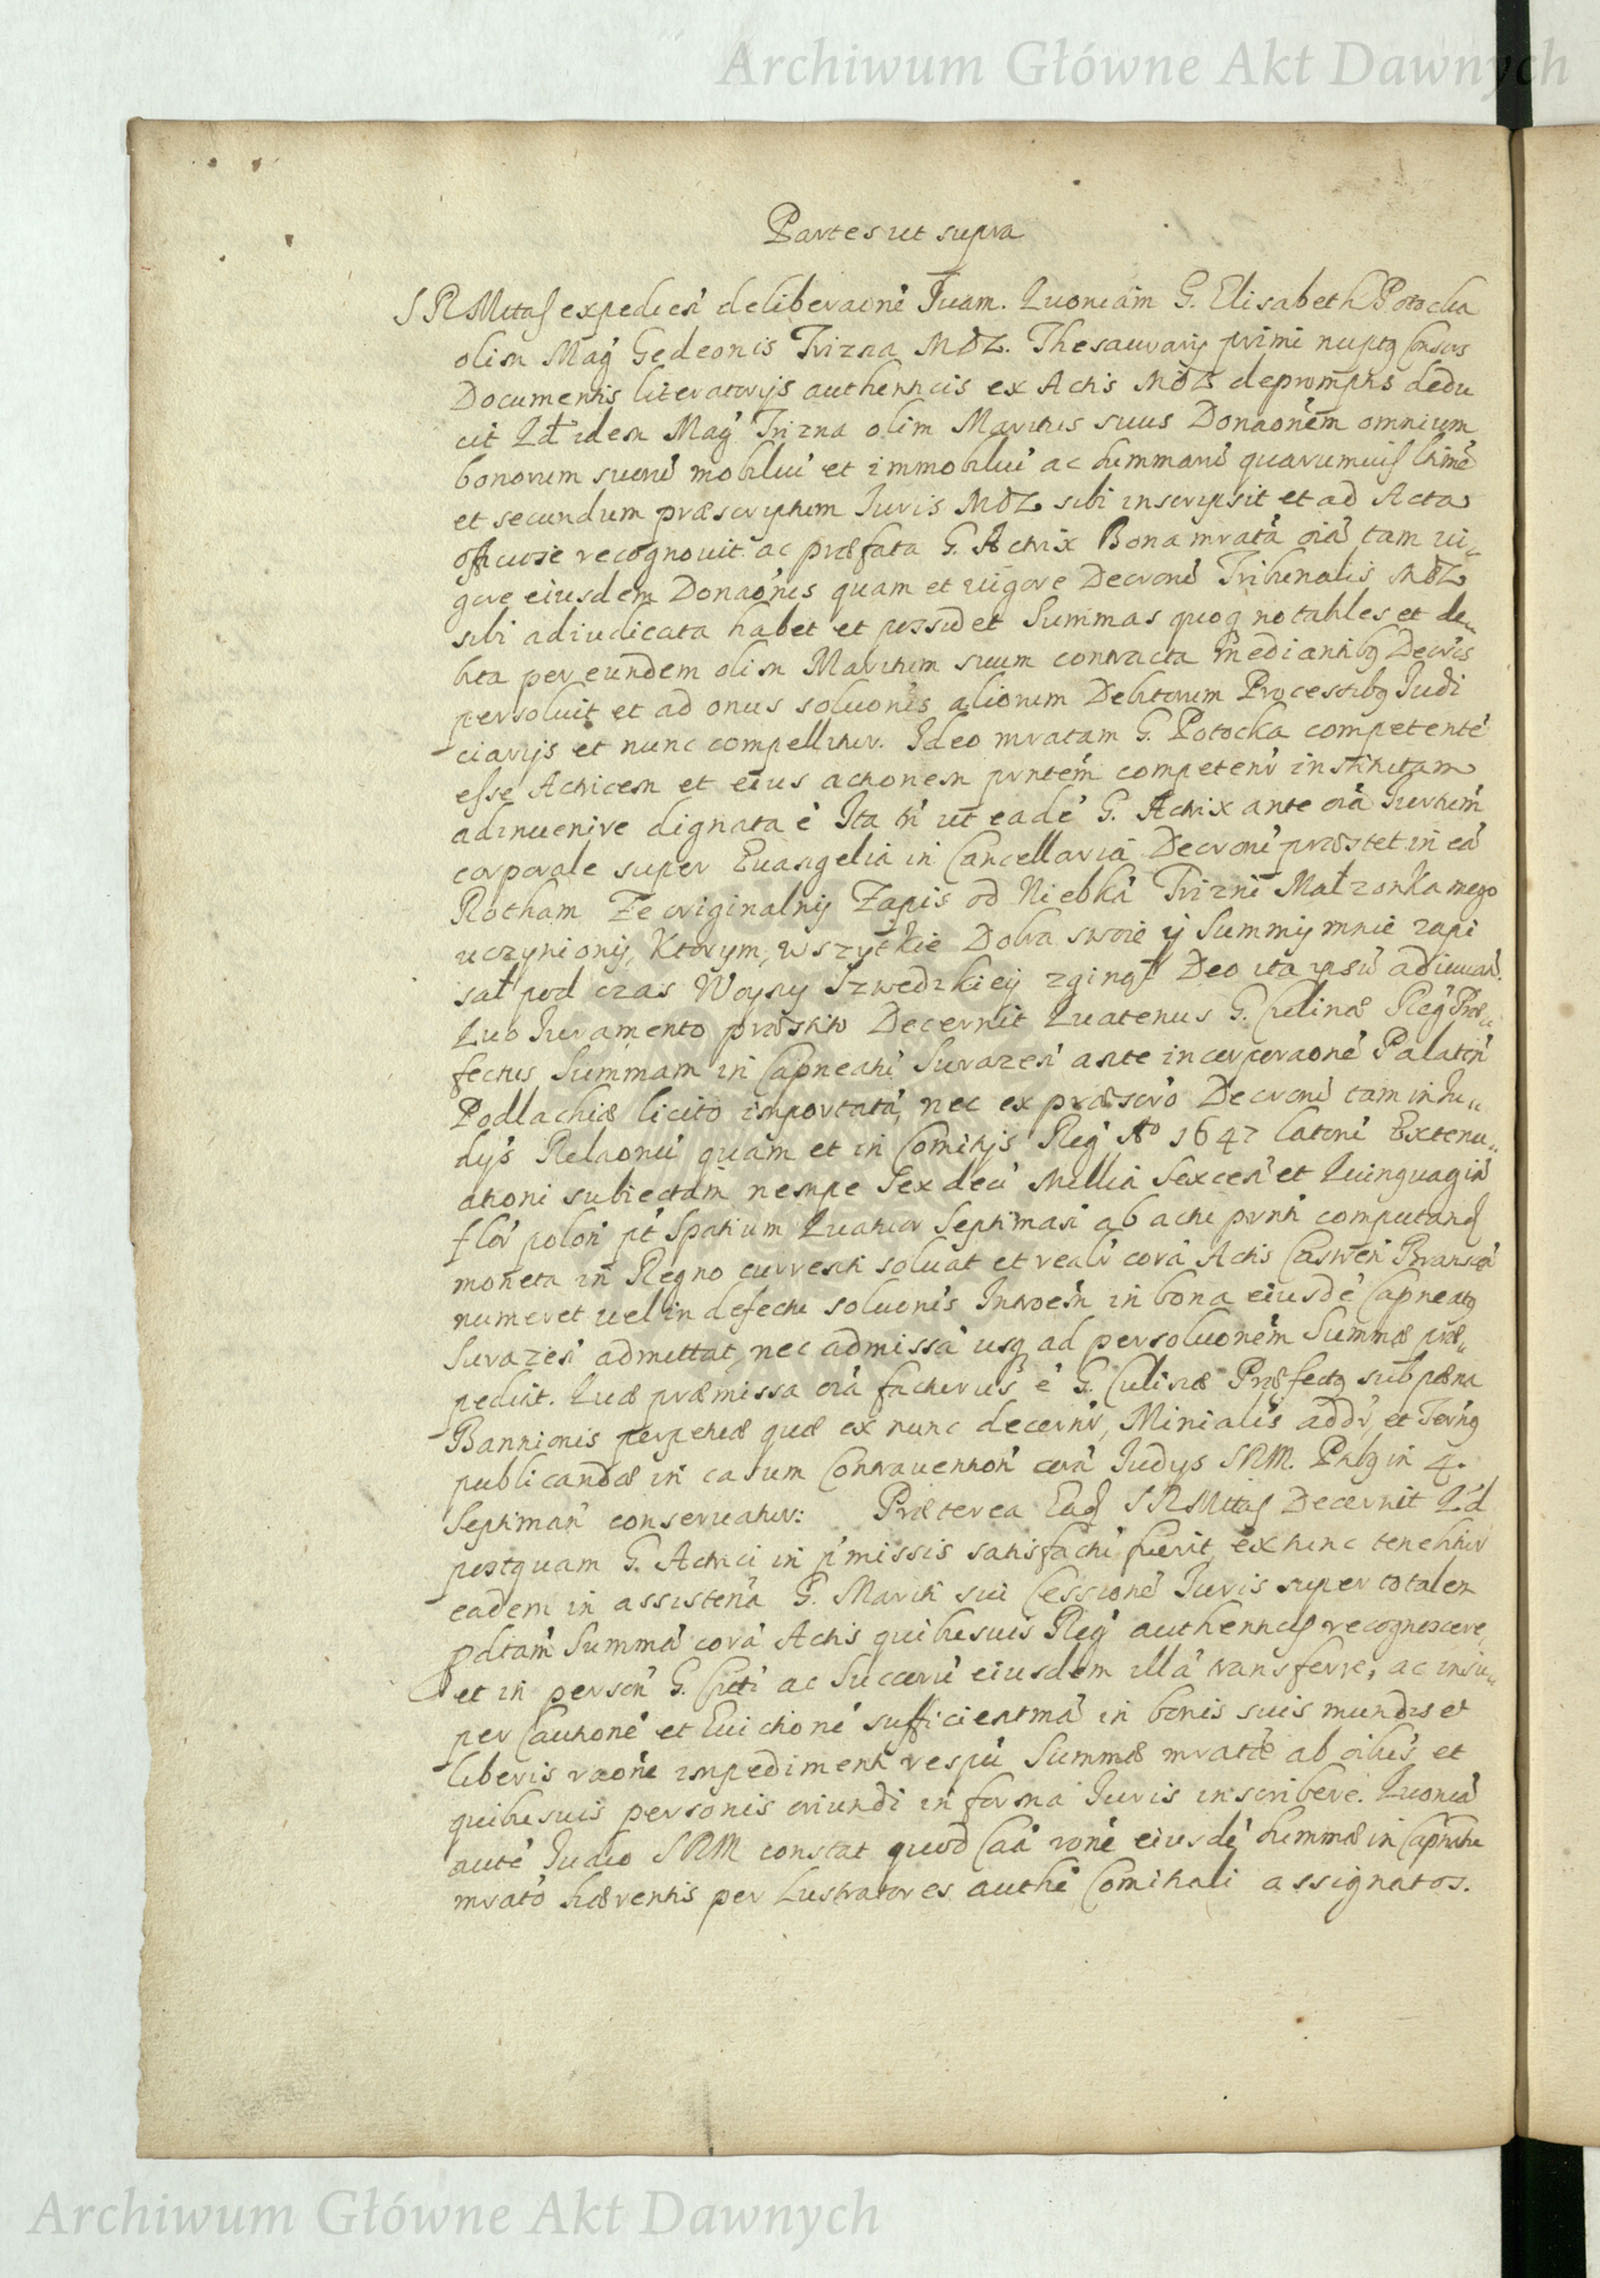 Archiwum Główne Akt Dawnych
Partes ut supra
S R Mttas expedien deliberaoni Suam. Quoniam G. Elisabeth Potocka
olim Mag Gedeonis Trizna MDL. Thesaurarij primi nuptq Consors
Documentis literatorijs authenticis ex Actis MDL depromptis dedu
cit Qd idem Mag Trizna olim Maritus suus Donaonem omnium
bonorum suoru mobiliu et immobiliu ac summaru quarumuis
et secundum præscriptum Juris MDL sibi inscripsit et ad Acta
officiose recognouit ac præfata G. Actrix Bona mrata oia tam ui„
gore eiusdem Donaonis quam et uigore Decroru Tribunalis MDL
sibi adiudicata habet et possidet Summas quoq notabiles et de„
bita per eundem olim Maritum suum contracta mediantibq Decris
persoluit et ad onus soluonis aliorum Debitorum Processibq Judi
ciarijs et nunc compellitur. Ideo mratam G. Potocka competente
esse Actricem et eius actionem prntem competenr institutam
adinuenire dignata e Ita tn ut eade G. Actrix ante oia Jurtum
corporale super Euangelia in Cancellaria Decroru præstet in ea
Rotham Ze originalny Zapis od Niebka Trizni Małzonka mego
uczyniony, Ktorym, wszytkie Dobra swoie y Summy mnie zapi
sał pod czas Woyny Szwedzkiey zginął Deo ita ipsu adiuuan.
Quo Juramento præstito Decernit Quatenus G. Culinæ Reg Præ„
fectus Summam in Capneatu Surazen ante incorporaone Palatin
Podlachiæ licito importata, nec ex præscro Decroru tam in Ju„
dijs Relaonu quam et in Comitijs Reg Ao 1647 latoru Extenu„
ationi subiectam nempe Sexdeci Millia Sexcen et Quinquagin
flor polon pt Spatium Quatuor Septimaru ab actu prnti computand
moneta in Regno currenti soluat et realr cora Actis Castren Branscen
numeret uel in defectu soluonis Introem in bona eiusde Capneatq
Surazen admittat, nec admissa usq ad persoluonem Summæ præ„
pediat. Quæ præmissa oia facturus e G. Culinæ Præfectq sub pæna
Bannionis perpetuæ quæ ex nunc decernr, Minialis addr, et Termq
publicandæ in casum Contrauention cora Judijs SRM. Phbq in 4.
Septiman conseruatur: Præterea Ead S R Mttas Decernit Qd
postquam G. Actrici in pmissis satisfactu fuerit, ex tunc tenebitur
eadem in assistena G. Mariti sui Cessione Juris super totalem
pdtam Summa cora Actis quibusuis Reg authenticis recognoscere,
et in person G. Citi ac Succoru eiusdem illa transferre, ac insu„
per Cautione et Euictione sufficientma in bonis suis mundis et
liberis raone impedimenti respu Summæ mratæ ab oibus et
quibusuis personis oriundi in forma Juris inscribere. Quonia
aute Judio SRM constat quod Caa rone eiusde summæ in Capntu
mrato hærentis per Lustratores authe Comitiali assignatos.
Archiwum Główne Akt Dawnych